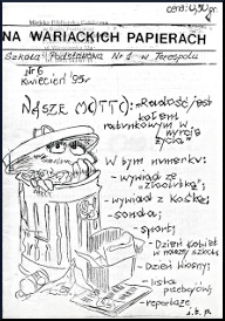 cena: 0,50 gr.
Miejska Biblioteka Publiczna
NA WARIACKICH PAPIERACH
Szkoła Podstawowa Nr 1 w Terespolu
nr 6
kwiecień '95r.
NASZE MOTTO: "Radość jest
kołem
ratunkowym w
życia"
W tym numerku:
- wywiad ze
- wywiad z Kośką;
- sonda;
- sport;
- Dzień Kobiet
w naszej szkole
- Dzień Wiosny;
- lista
przebojów;
- reportaże
i.t.p.